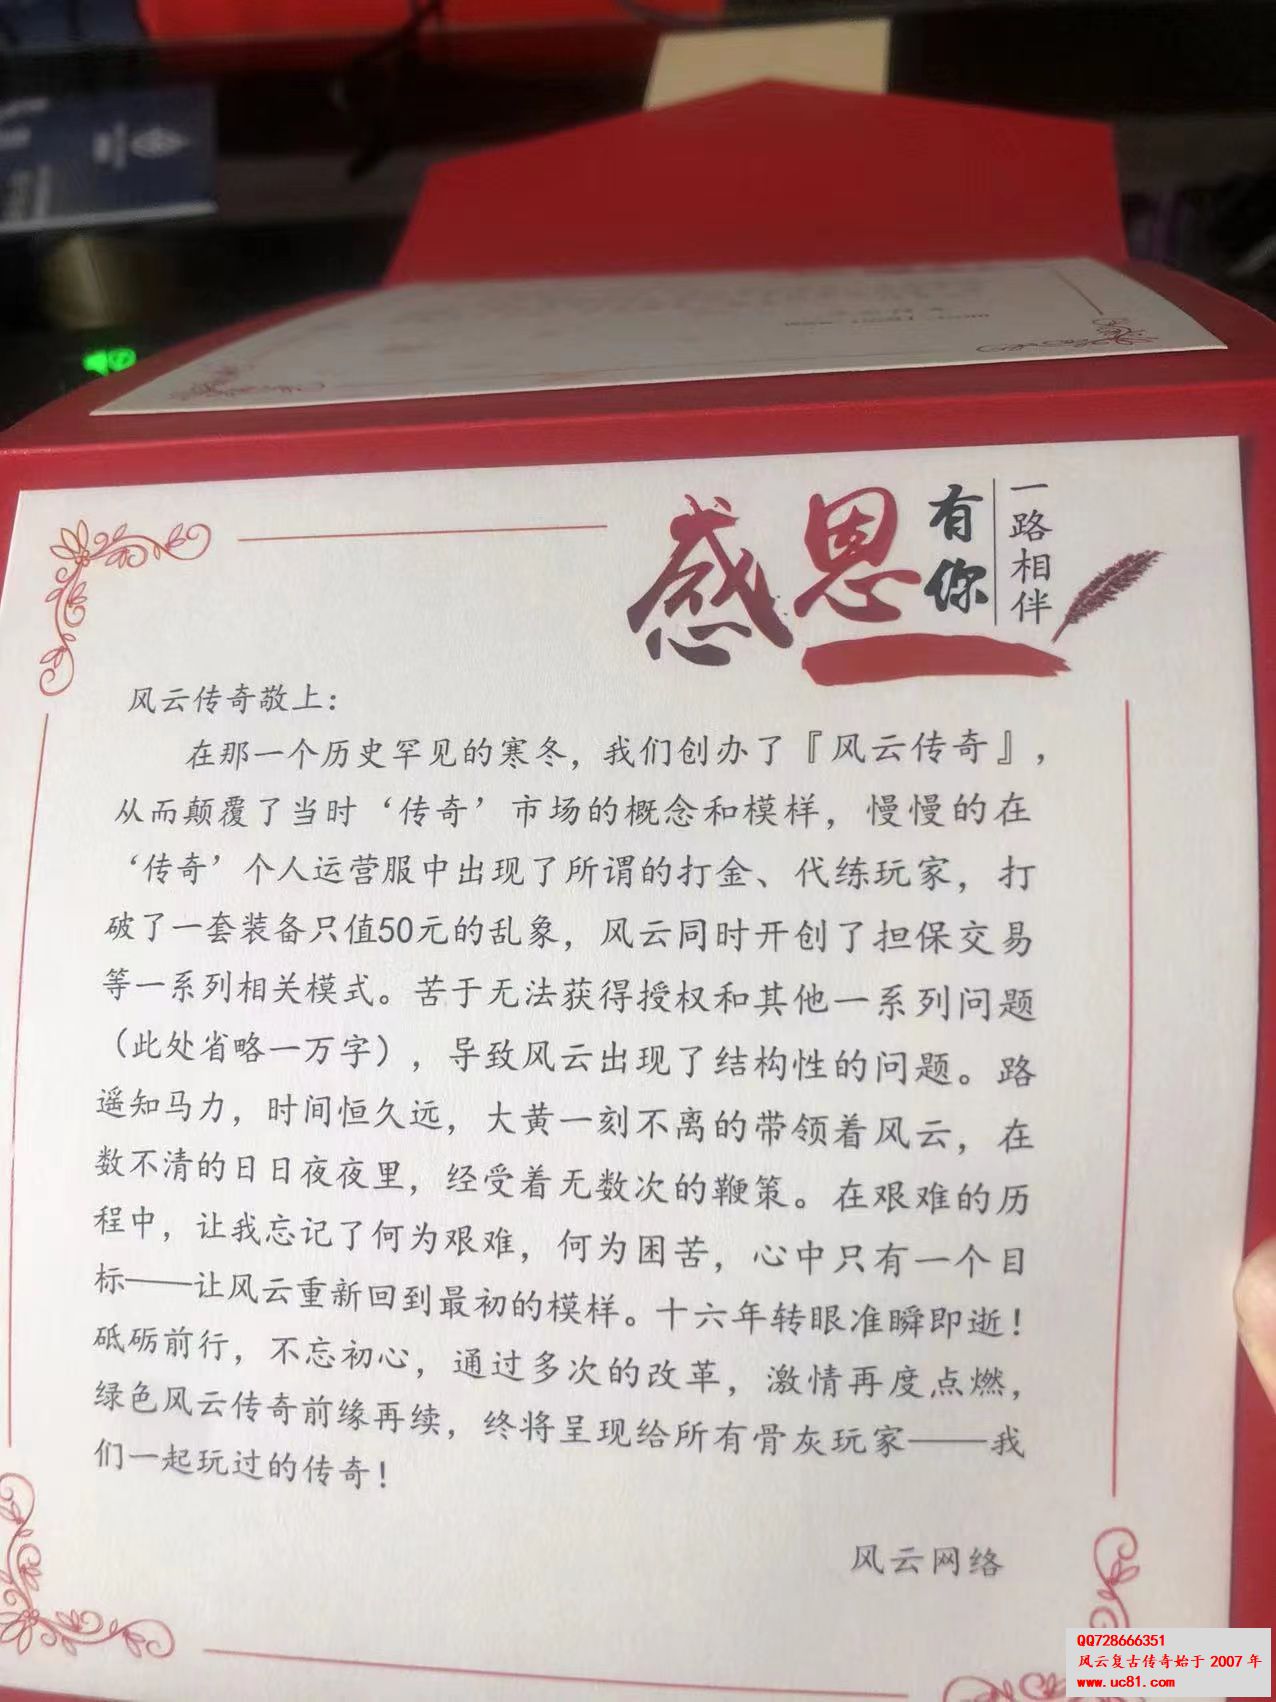 感恩有你
一路相伴
风云传奇敬上：
在那一个历史罕见的寒冬，我们创办了『风云传奇』，
从而颠覆了当时‘传奇’市场的概念和模样，慢慢的在
‘传奇’个人运营服中出现了所谓的打金、代练玩家，打
破了一套装备只值50元的乱象，风云同时开创了担保交易
等一系列相关模式。苦于无法获得授权和其他一系列问题
（此处省略一万字），导致风云出现了结构性的问题。路
遥知马力，时间恒久远，大黄一刻不离的带领着风云，在
数不清的日日夜夜里，经受着无数次的鞭策。在艰难的历
程中，让我忘记了何为艰难，何为困苦，心中只有一个目
标——让风云重新回到最初的模样。十六年转眼准瞬即逝！
砥砺前行，不忘初心，通过多次的改革，激情再度点燃，
绿色风云传奇前缘再续，终将呈现给所有骨灰玩家——我
们一起玩过的传奇！
风云网络
QQ728666351
风云复古传奇始于 2007 年
www.uc81.com